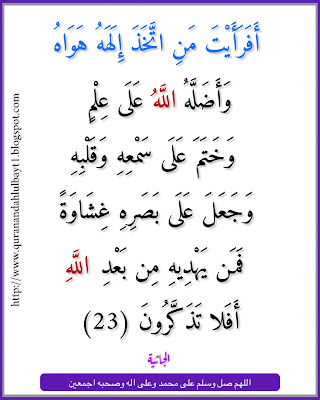 أَفَرَأَيْتَ مَنِ اتَّخَذَ إِلَهَهُ هَوَاهُ
وَأَضَلَّهُ اللَّهُ عَلَى عِلْمٍ
وَخَتَمَ عَلَى سَمْعِهِ وَقَلْبِهِ
وَجَعَلَ عَلَى بَصَرِهِ غِشَاوَةً
فَمَن يَهْدِيهِ مِن بَعْدِ اللَّهِ
أَفَلَا تَذَكَّرُونَ (23)
الجاثية
اللهم صل وسلم على محمد وعلى اله وصحبه اجمعين
http://www.quranandahlulbayt1.blogspot.com